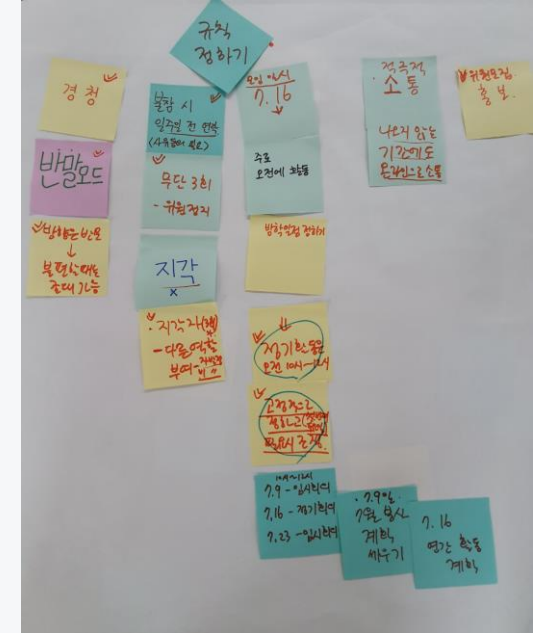 규칙
정하기
경청
반말모드
방향은 반모
↓
불편할 때는
존대 가능
불참 시
일주일 전 연락
무단 3회
- 위원정지
지각
x
· 지각자
- 다른 역할
부여 -
모임 일시
7. 16
↓
주로
오전에 활동
방학일정 정하기
정기활동은
오전 10시~12시
고정적으로
정하고
필요시 조정
10시~12시
7.9 - 임시회의
7.16 - 정기회의
7.23 - 임시회의
· 7.9일.
7월 봉사
계획
세우기
7.16
연간 활동
계획
· 적극적
소통
나오지 않는
기간에도
온라인으로 소통
위원모집
홍보.